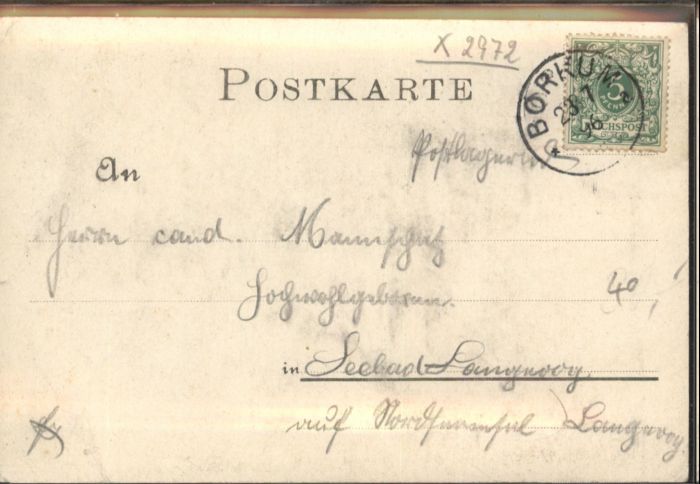 X 2972
POSTKARTE
BORKUM
23 7
96
5
REICHSPOST
Postlagernd
An
Herrn cand. Mannschatz
Hochwohlgeboren.
40,
in Seebad Langeoog.
auf Nordseeinsel Langeoog.